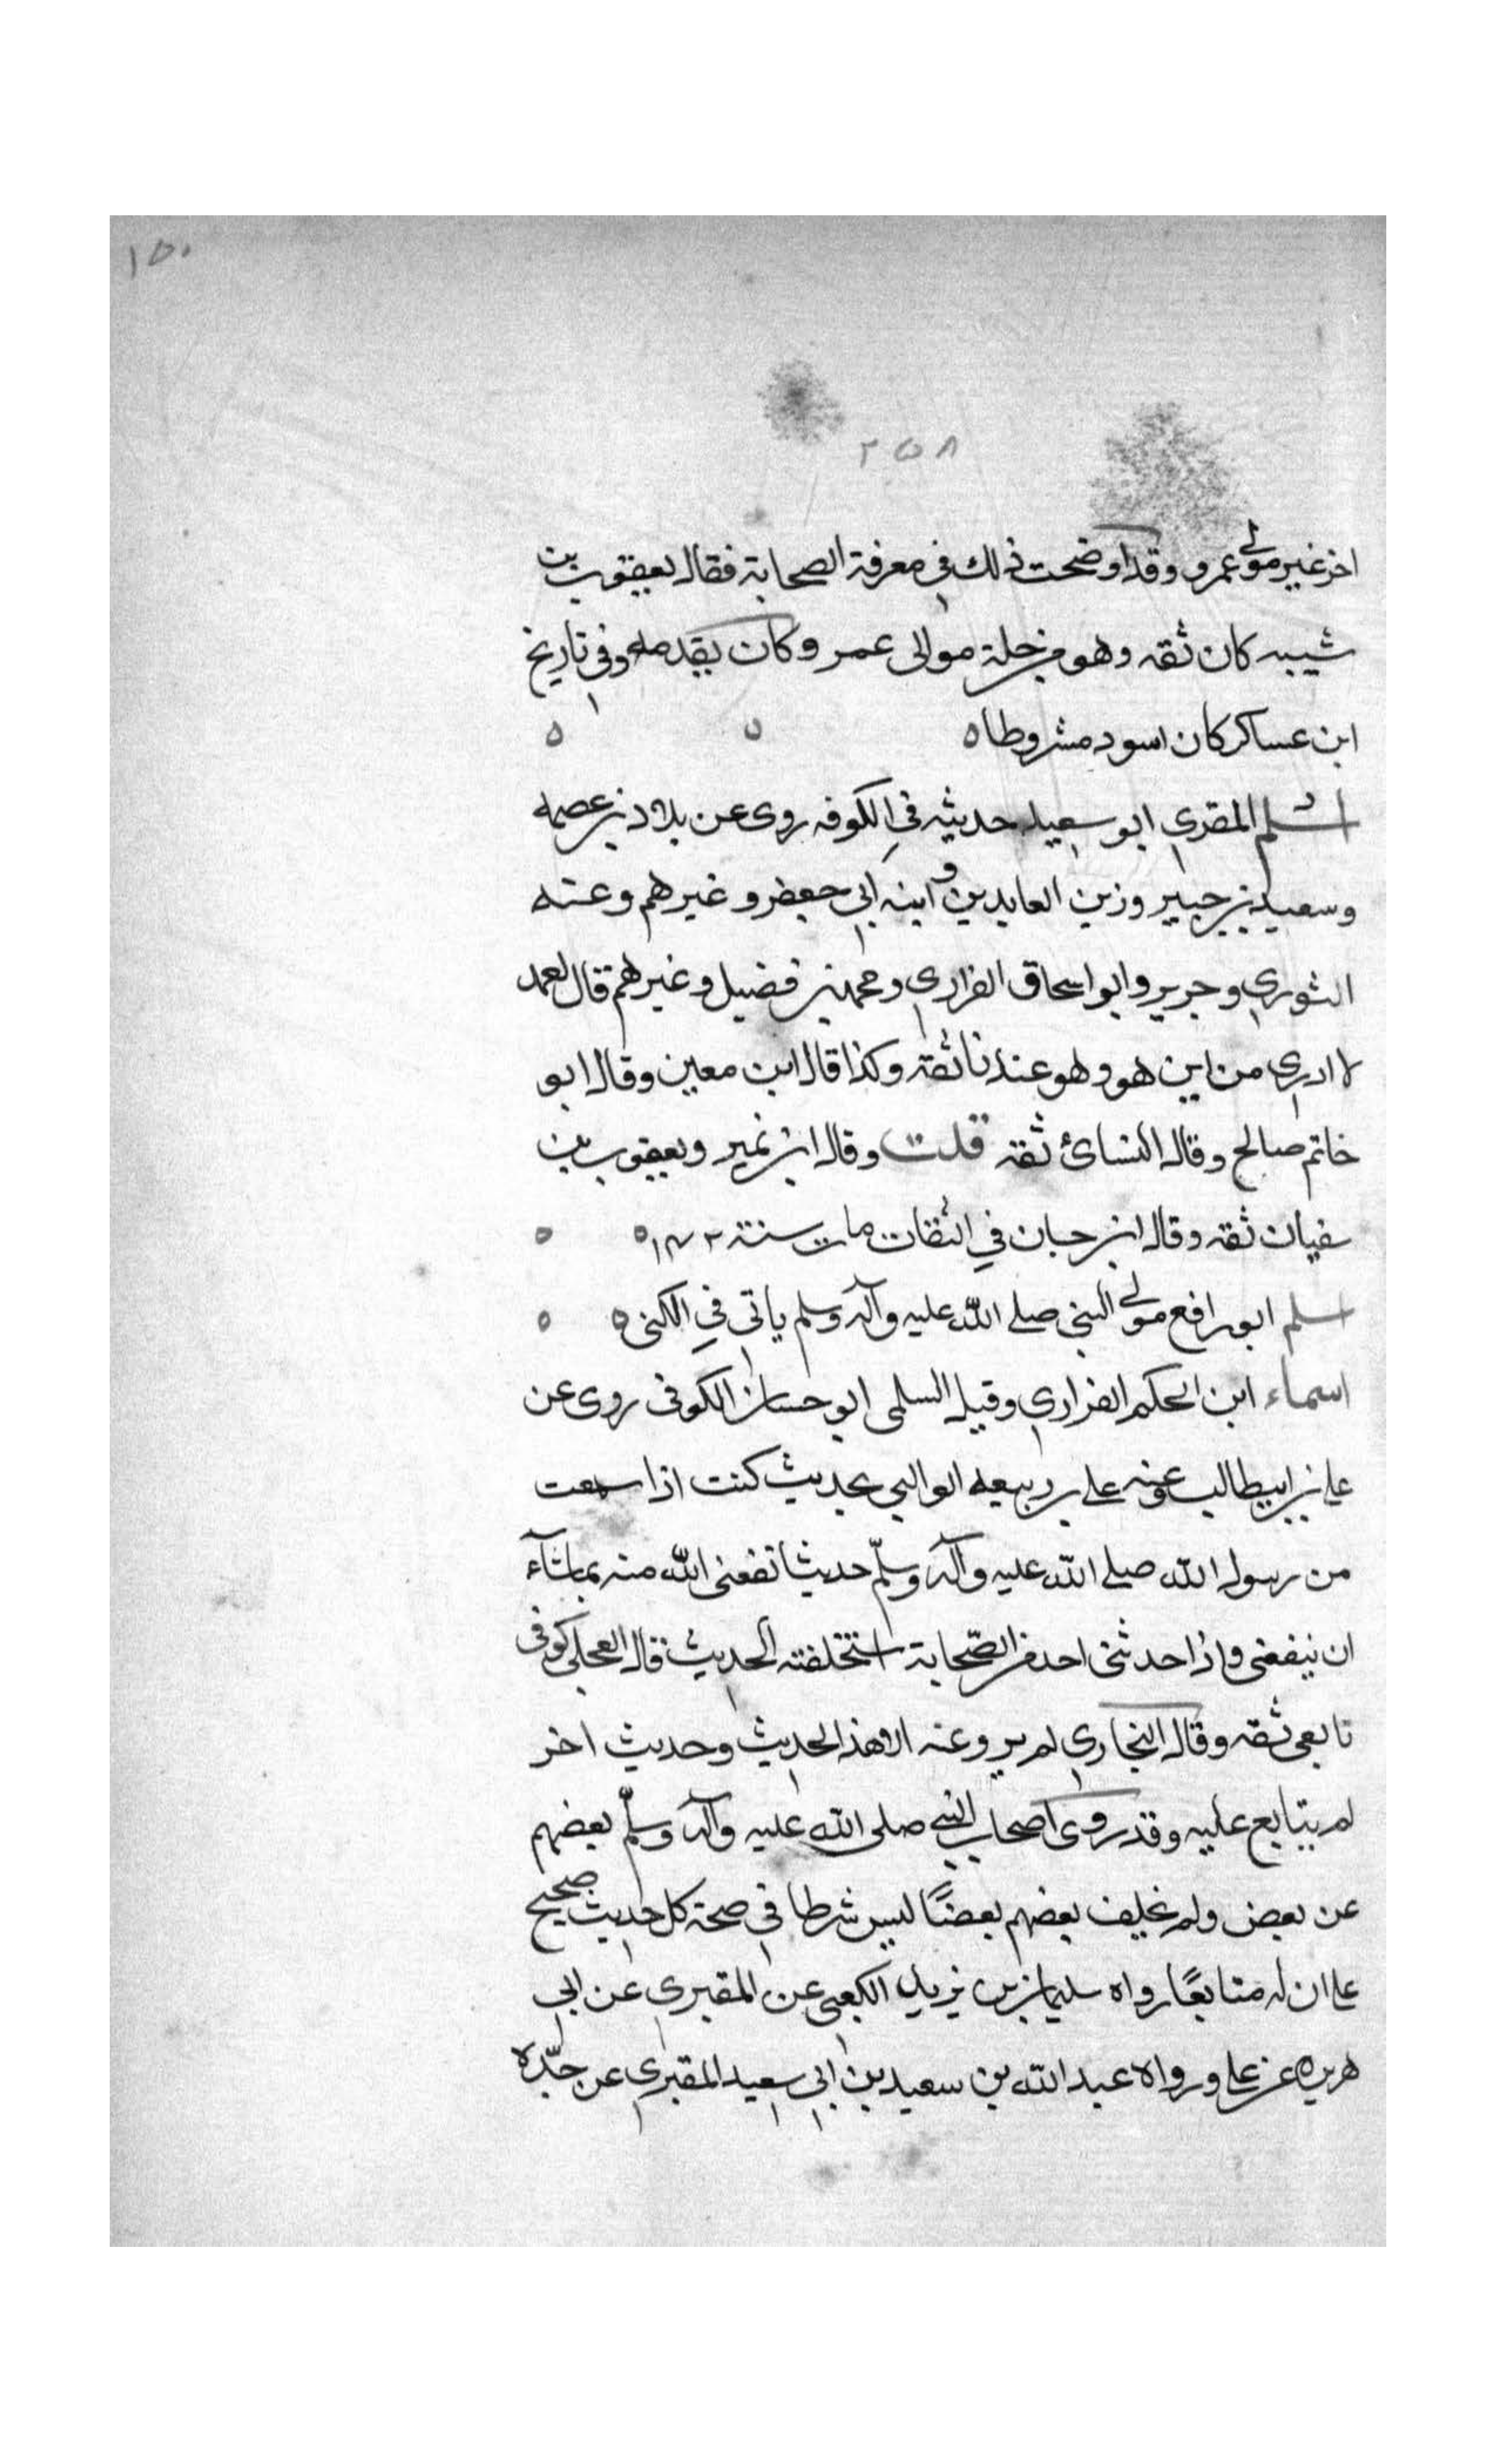 ١٥٠
٢٥٨
اخر غير مولى عمرو وقد اوضحت ذلك في معرفة الصحابة فقال يعقوب بن
شيبه كان ثقه وهو من جلة موالى عمر وكان يقدمه وفي تاريخ
ابن عساكر كان اسود مشروطا ه ه ه
اسلم المقرى ابو سعيد حديثه في الكوفه روى عن بلاد بن عصمه
وسعيد بن جبير وزين العابدين وابنه ابي جعفر وغيرهم وعنه
الثوري وجرير وابو اسحاق الفزاري ومحمد بن فضيل وغيرهم قال احمد
لا ادرى من اين هو وهو عندنا ثقة وكذا قال ابن معين وقال ابو
خاتم صالح وقال النسائ ثقه قلت وقال ابن نمير ويعقوب بن
سفيان ثقه وقال ابن حبان في الثقات مات سنة ه ه
اسلم ابو رافع مولى النبي صلى الله عليه وآله وسلم ياتى في الكنى ه ه
اسماء ابن الحكم الفزاري وقيل السلمى ابو حسان الكوفى روى عن
على بن ابيطالب وعنه على بن ربيعه الوالبي بحديث كنت اذا سمعت
من رسول الله صلى الله عليه وآله وسلّم حديثا نفعنى الله منه بما شآء
ان ينفعنى واذا حدثنى احد من الصّحابة استخلفته الحديث قال العجلى كوفى
تابعى ثقه وقال البخاري لم يرو عنه الا هذا الحديث وحديث اخر
لم يتابع عليه وقد روى اصحاب النبي صلى الله عليه وآله وسلّم بعضهم
عن بعض ولم يحلف بعضهم بعضًا ليس شرطا في صحة كل حديث صحيح
على ان له متابعًا رواه سليمان بن يزيد الكعبى عن المقبرى عن ابى
هريره عن على ورواه عبد الله بن سعيد بن ابي سعيد المقبرى عن جدّه